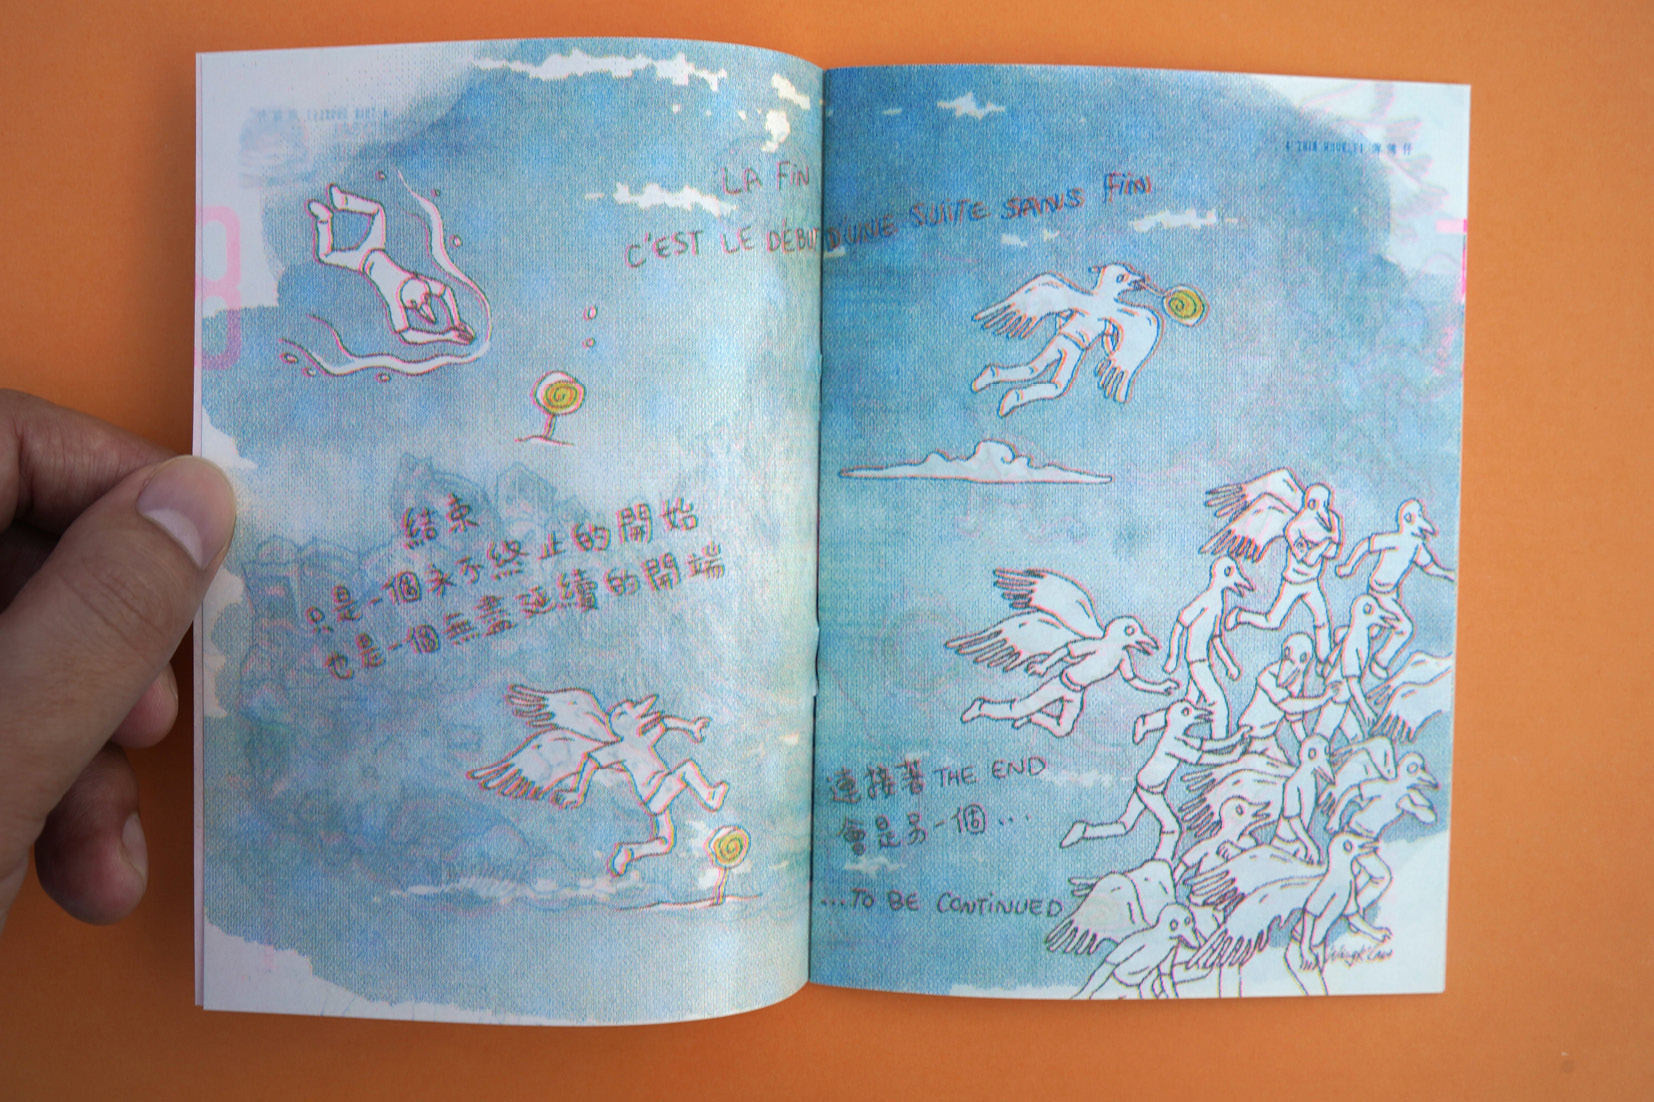 LA FIN
C'EST LE DÉBUT D'UNE SUITE SANS FIN
結束
只是一個永不終止的開始
也是一個無盡延續的開端
連接著 THE END
會是另一個...
...TO BE CONTINUED